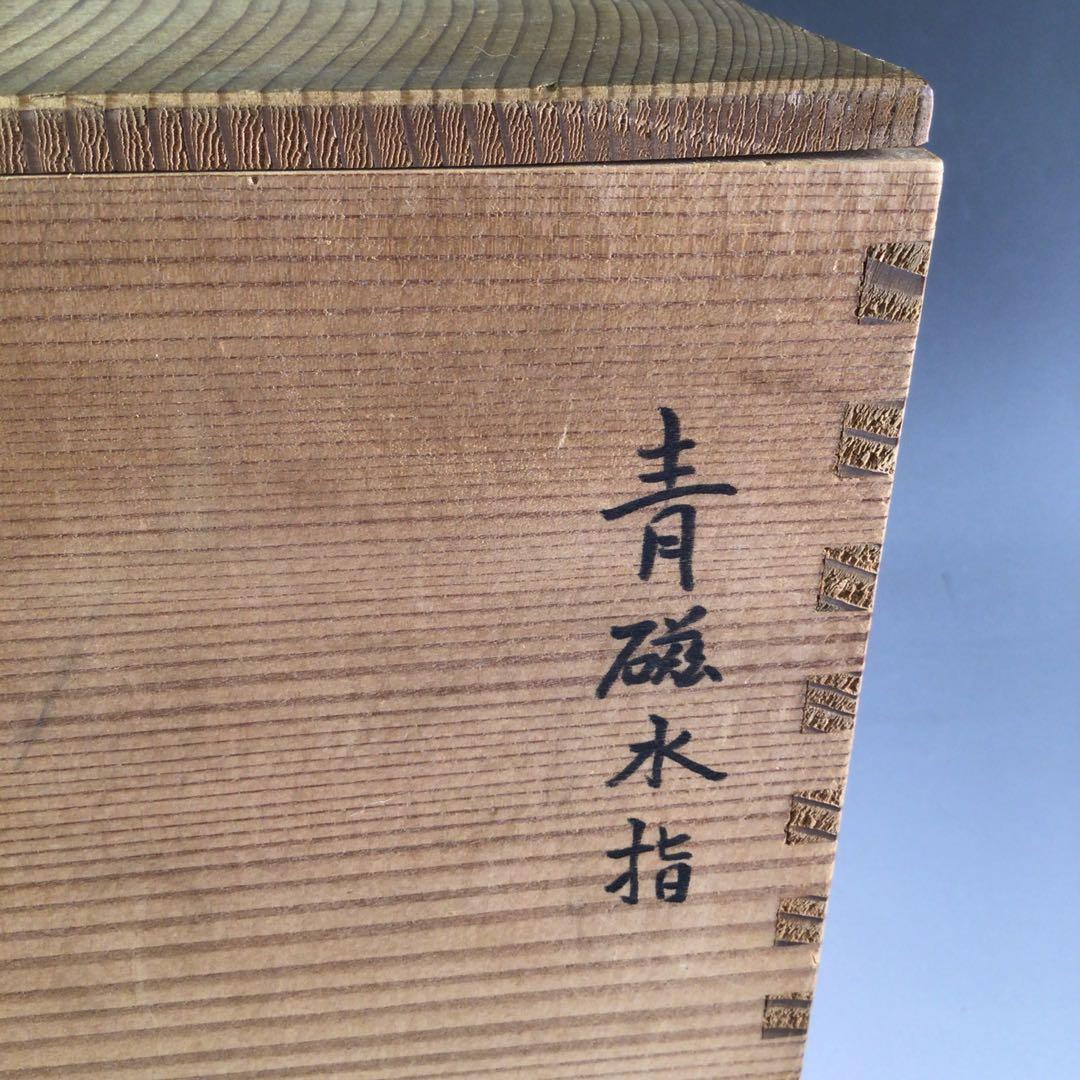 青磁水指